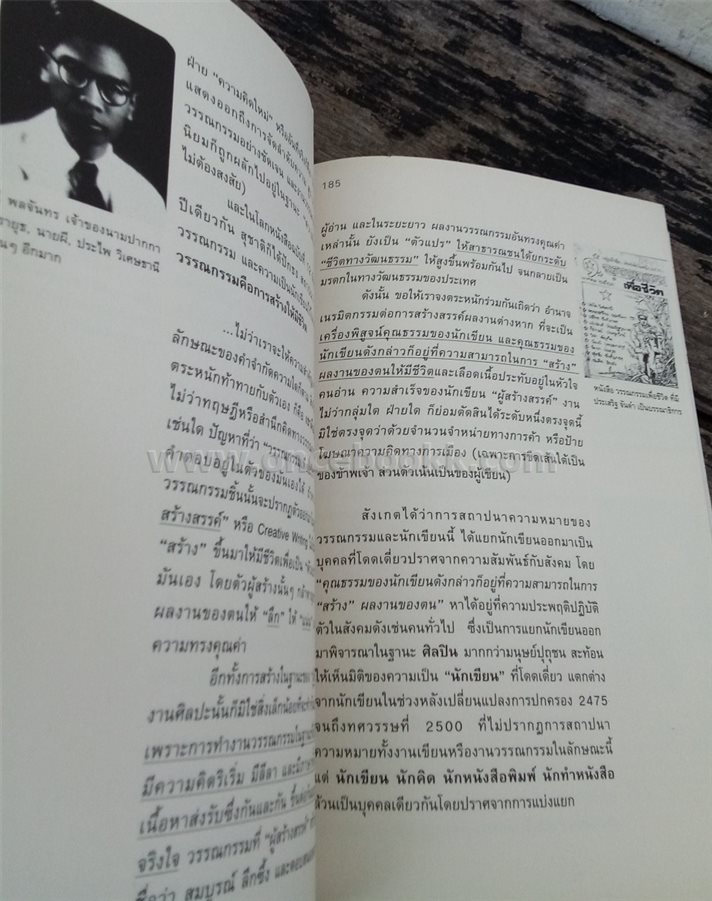 พลจันทร เจ้าของนามปากกา
นายผี, ประไพ วิเศษธานี
อีกมาก
ฝ่าย "ความคิดใหม่"
แสดงออกถึงการจัดลำดับความ
วรรณกรรมอย่างชัดเจน
นิยมก็ถูกผลักไปอยู่ในฐานะ
ไม่ต้องสงสัย)
และในโลกหนังสือฉบับที่
ปีเดียวกัน สุชาติก็ได้ปักธง
วรรณกรรม และความเป็นนักเขียน
วรรณกรรมคือการสร้างให้มีชีวิต
...ไม่ว่าเราจะให้ความ
ลักษณะของคำจำกัดความใดก็ตาม
ตระหนักท้าทายกับตัวเอง ก็คือ
ไม่ว่าทฤษฎีหรือสำนึกคิดทางวรรณ
เช่นใด ปัญหาที่ว่า "วรรณกรรม
คำตอบอยู่ในตัวของมันเองได้
วรรณกรรมชิ้นนั้นจะปรากฏตัวอย่าง
สร้างสรรค์" หรือ Creative Writing
"สร้าง" ขึ้นมาให้มีชีวิตเพื่อเป็น
มันเอง โดยตัวผู้สร้างนั้นๆ
ผลงานของตนให้ "ลึก" ให้
ความทรงคุณค่า
อีกทั้งการสร้างในฐานะของ
งานศิลปะนั้นก็มิใช่สิ่งเล็กน้อยที่จะทำ
เพราะการทำงานวรรณกรรมในฐานะ
มีความคิดริเริ่ม มีลีลา และมี
เนื้อหาส่งรับซึ่งกันและกัน
จริงใจ วรรณกรรมที่ "ผู้สร้างสรรค์"
ชื่อว่า สมบูรณ์ ลึกซึ้ง และ
185
ผู้อ่าน และในระยะยาว ผลงานวรรณกรรมอันทรงคุณค่า
เหล่านั้น ยังเป็น "ตัวแปร" ให้สาธารณชนได้ยกระดับ
"ชีวิตทางวัฒนธรรม" ให้สูงขึ้นพร้อมกันไป จนกลายเป็น
มรดกในทางวัฒนธรรมของประเทศ
ดังนั้น ขอให้เราจงตระหนักร่วมกันเถิดว่า อำนาจ
เนรมิตกรรมต่อการสร้างสรรค์ผลงานต่างหาก ที่จะเป็น
เครื่องพิสูจน์คุณธรรมของนักเขียน และคุณธรรมของ
นักเขียนดังกล่าวก็อยู่ที่ความสามารถในการ "สร้าง"
ผลงานของตนให้มีชีวิตและเลือดเนื้อประทับอยู่ในหัวใจ
คนอ่าน ความสำเร็จของนักเขียน "ผู้สร้างสรรค์" งาน
ไม่ว่ากลุ่มใด ฝ่ายใด ก็ย่อมตัดสินได้ระดับหนึ่งตรงจุดนี้
มิใช่ตรงจุดว่าด้วยจำนวนจำหน่ายทางการค้า หรือป้าย
โฆษณาความคิดทางการเมือง (เฉพาะการขีดเส้นใต้เป็น
ของข้าพเจ้า ส่วนตัวเน้นเป็นของผู้เขียน)
เพื่อชีวิต
หนังสือ วรรณกรรมเพื่อชีวิต ที่มี
ประเสริฐ จันดำ เป็นบรรณาธิการ
สังเกตได้ว่าการสถาปนาความหมายของ
วรรณกรรมและนักเขียนนี้ ได้แยกนักเขียนออกมาเป็น
บุคคลที่โดดเดี่ยวปราศจากความสัมพันธ์กับสังคม โดย
"คุณธรรมของนักเขียนดังกล่าวก็อยู่ที่ความสามารถในการ
"สร้าง" ผลงานของตน" หาได้อยู่ที่ความประพฤติปฏิบัติ
ตัวในสังคมดังเช่นคนทั่วไป ซึ่งเป็นการแยกนักเขียนออก
มาพิจารณาในฐานะ ศิลปิน มากกว่ามนุษย์ปุถุชน สะท้อน
ให้เห็นมิติของความเป็น "นักเขียน" ที่โดดเดี่ยว แตกต่าง
จากนักเขียนในช่วงหลังเปลี่ยนแปลงการปกครอง 2475
จนถึงทศวรรษที่ 2500 ที่ไม่ปรากฏการสถาปนา
ความหมายทั้งงานเขียนหรืองานวรรณกรรมในลักษณะนี้
แต่ นักเขียน นักคิด นักหนังสือพิมพ์ นักทำหนังสือ
ล้วนเป็นบุคคลเดียวกันโดยปราศจากการแบ่งแยก
www.oncebookk.com